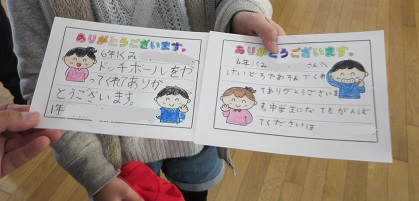 ありがとうございます。
6年1くみ
ドッチボールをや
ってくれてありが
とうございます。
1年
ありがとうございます。
6年1くみ さんへ
けいどろであそんでくれ
てありがとうございま
中学生になってもがんば
ってください